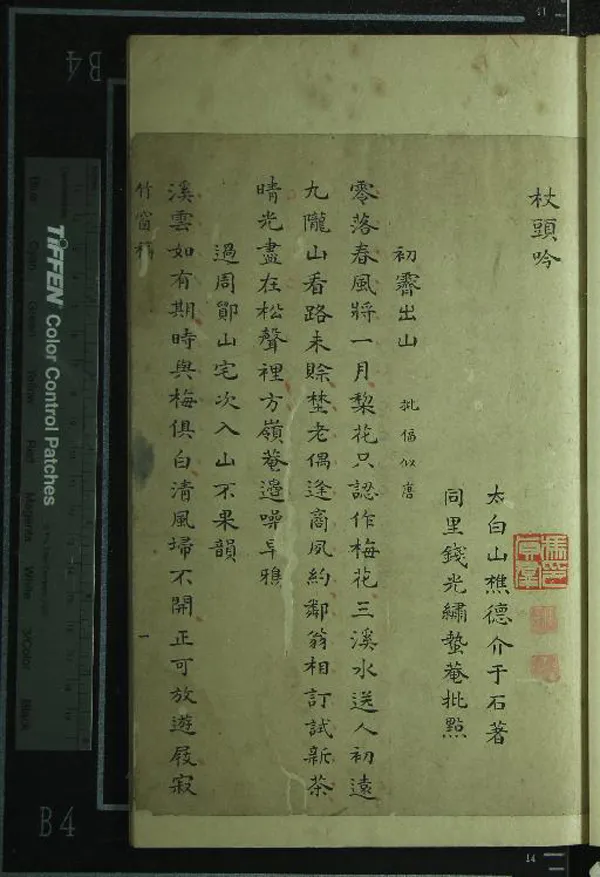 杖頭吟
太白山樵德介于石著
同里錢光繡蟄菴批點
初霽出山 批偪似唐
零落春風將一月梨花只認作梅花三溪水送人初遠
九隴山看路未賒埜老偶逢商夙約鄰翁相訂試新茶
晴光盡在松聲裡方嶺菴邉噪早鴉
過周鄮山宅次入山不果韻
溪雲如有期時與梅俱白清風埽不開正可放遊屐寂
竹窗稿 一
B4
B4
TIFFEN Color Control Patches
Blue Cyan Green Yellow Red Magenta White 3Color Black
41
14